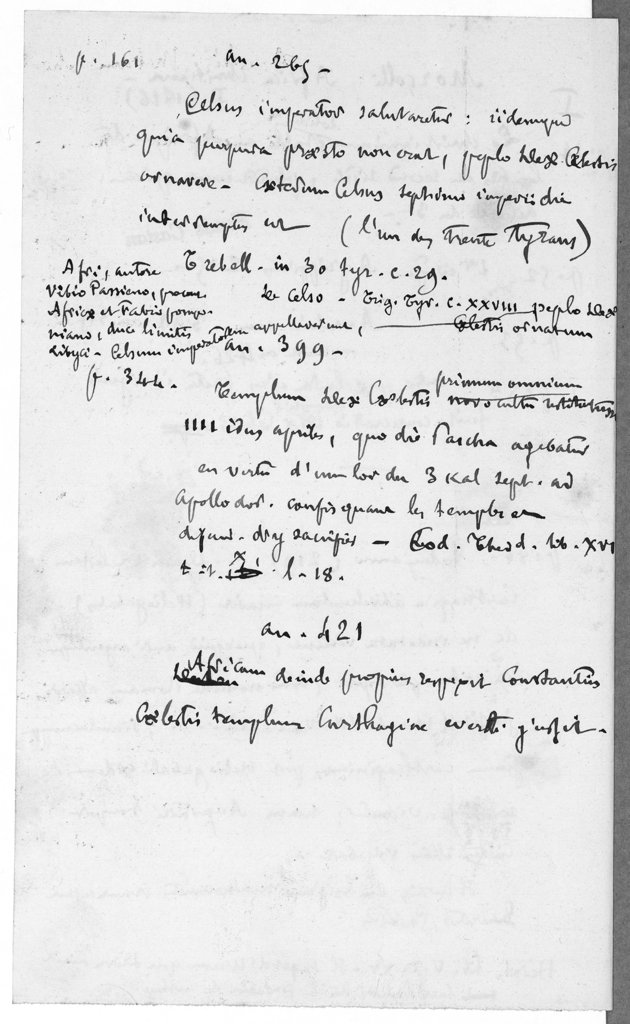 p. 161 an. 265 -
Celsus imperator salutatur : iidemque
quia purpura præsto non erat, peplo deæ Cælestis
ornavere - Cæterum Celsus septimo imperii die
interremptus est (l'un des trente Tyrans)
Trebell. in 30 tyr. c. 29.
Afri, autore
Vibio Passieno, procos.
Africæ et Fabio pompo-
niano, duce limitis
Libyci - Celsum imperatorem appellaverunt,
de Celso - Trig. Tyr. c. XXVIII peplo deæ
Cælestis ornatum
an. 399 -
p. 344. Templum deæ Cælestis primum omnium
novo cultu
IIII idus apriles, quo die Pascha agebatur
en vertu d'une loi du 3 Kal sept. ad
Apollodor. confisquant les temples et
défend. d'y sacrifier - Cod. Theod. lib. XVI
tit. X l. 18.
an. 421
Africam deinde propius respexit Constantius
Cælestis templum Carthagine everti jussit.